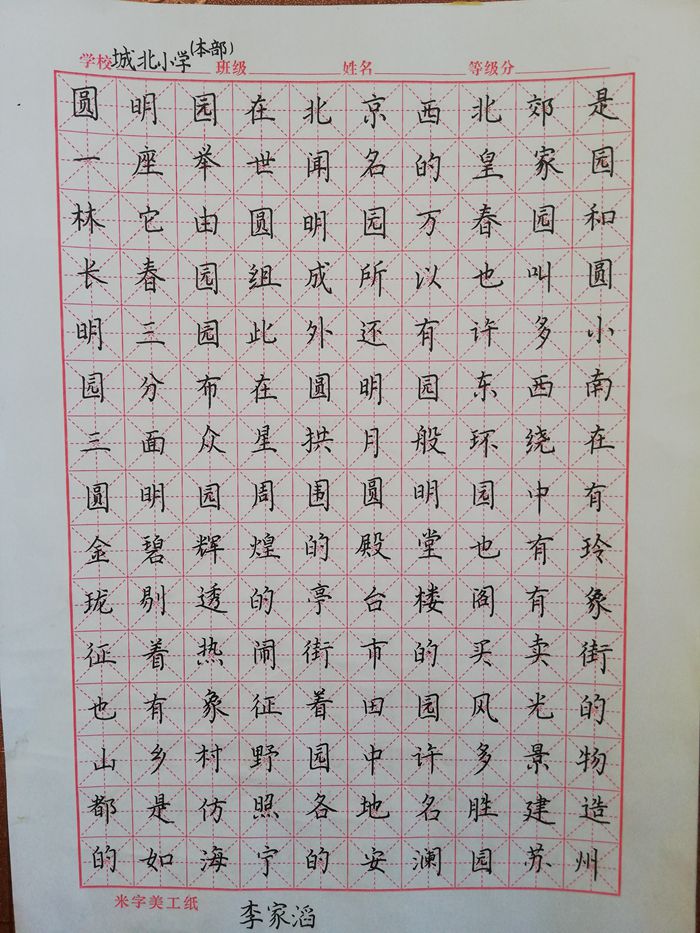 学校 城北小学(本部) 班级 姓名 等级分
圆明园在北京西北郊是
一座举世闻名的皇家园
林它由圆明园万春园和
长春园组成所以也叫圆
明三园此外还有许多小
园分布在圆明园东西南
三面众星拱月般环绕在
圆明园周围圆明园中有
金碧辉煌的殿堂也有玲
珑剔透的亭台楼阁有象
征着热闹街市的买卖街
也有象征着田园风光的
山乡村野园中许多景物
都是仿照各地名胜建造
的如海宁的安澜园苏州
米字美工纸 李家滔